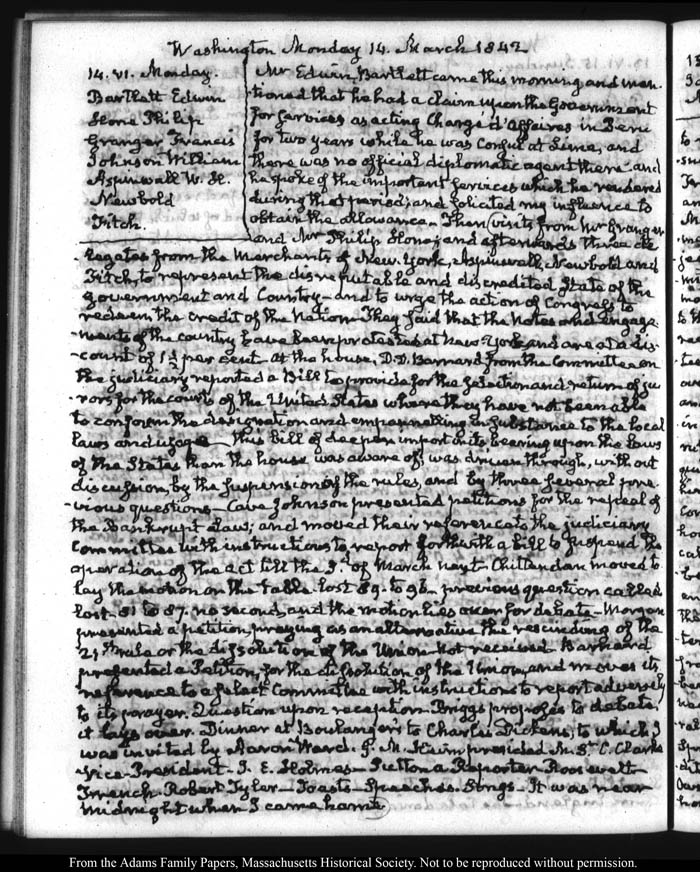 Washington Monday 14. March 1842
14. VI. Monday.
Bartlett Edwin
Hone Philip
Granger Francis
Johnson William
Aspinwall W. H.
Newbold
Fitch.
Mr Edwin Bartlett came this morning and men-
tioned that he had a claim upon the Government
for services as acting Chargé d'Affaires in Peru
for two years while he was Consul at Lima, and
there was no official diplomatic agent there and
he spoke of the important services which he rendered
during that period; and solicited my influence to
obtain the allowance. Then visits from Mr Granger
and Mr Philip Hone; and afterwards three de-
legates from the Merchants of New-York, Aspinwall, Newbold and
Fitch, to represent the disreputable and discredited State of the
Government and Country—and to urge the action of Congress to
redeem the credit of the Nation—They said that the Notes and Engage-
ments of the country have been protested at New-York and are at a dis-
count of 1½ per cent—At the house, D. D. Barnard from the Committee on
the judiciary reported a Bill to provide for the selection and return of ju-
rors for the courts of the United States where they have not been able
to conform the designation and empannelling in substance to the local
laws and usage—This bill of deeper import on its bearing upon the laws
of the States than the house was aware of, was driven through, without
discussion, by the suspension of the rules, and by three several pre-
vious questions—Cave Johnson presented petitions for the repeal of
the Bankrupt Law; and moved their reference to the judiciary
Committee with instructions to report forthwith a bill to suspend the
operation of the act till the 3d of March next—Chittenden moved to
lay the motion on the table. lost 89. to 96—previous question called
lost—81 to 87. no second, and the motion lies over for debate—Morgan
presented a petition, praying as an alternative the rescinding of the
21st rule or the dissolution of the Union—Not received Barnard
presented a Petition, for the dissolution of the Union, and moves its
reference to a select Committee with instructions to report adversely
to its prayer. Question upon reception—Briggs proposes to debate.
it lays over. Dinner at Boulanger's to Charles Dickens, to which I
was invited by Aaron Ward. J. M. Keim presided M. St. C. Clarke
Vice-President—I. E. Holmes—Sutton a Reporter Roosevelt
French. Robert Tyler—Toasts—Speeches. Songs—It was near
midnight when I came home
From the Adams Family Papers, Massachusetts Historical Society. Not to be reproduced without permission.